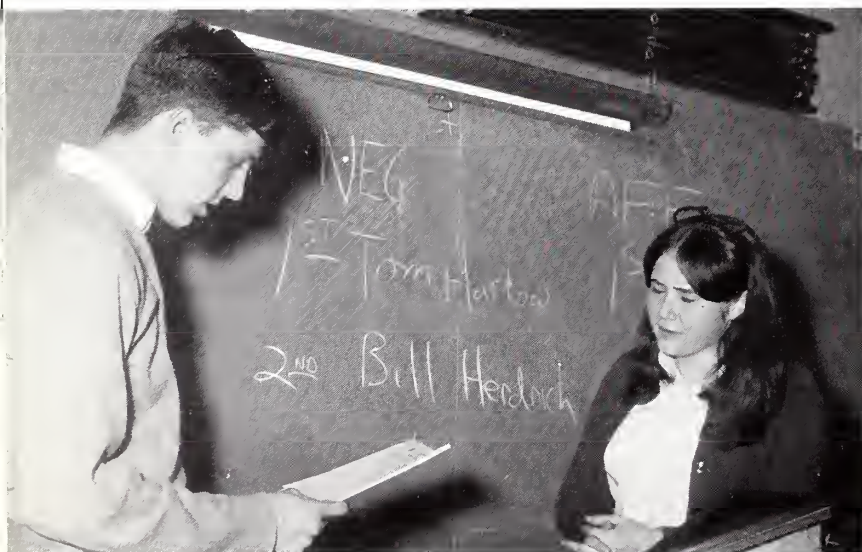 NEG AFF
1ST Tom Hartow 1S
2ND Bill Herdrich